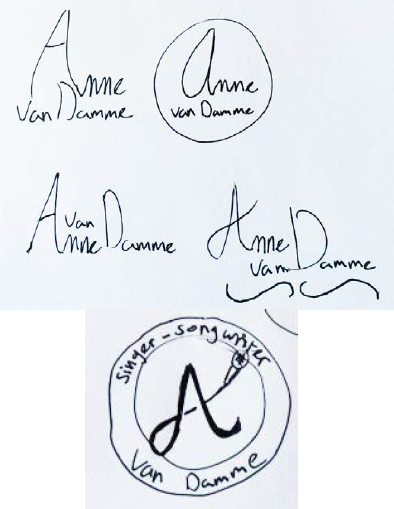 Anne
van Damme
Anne
van Damme
van
Anne Damme
Anne
van Damme
singer-songwriter
A
van Damme